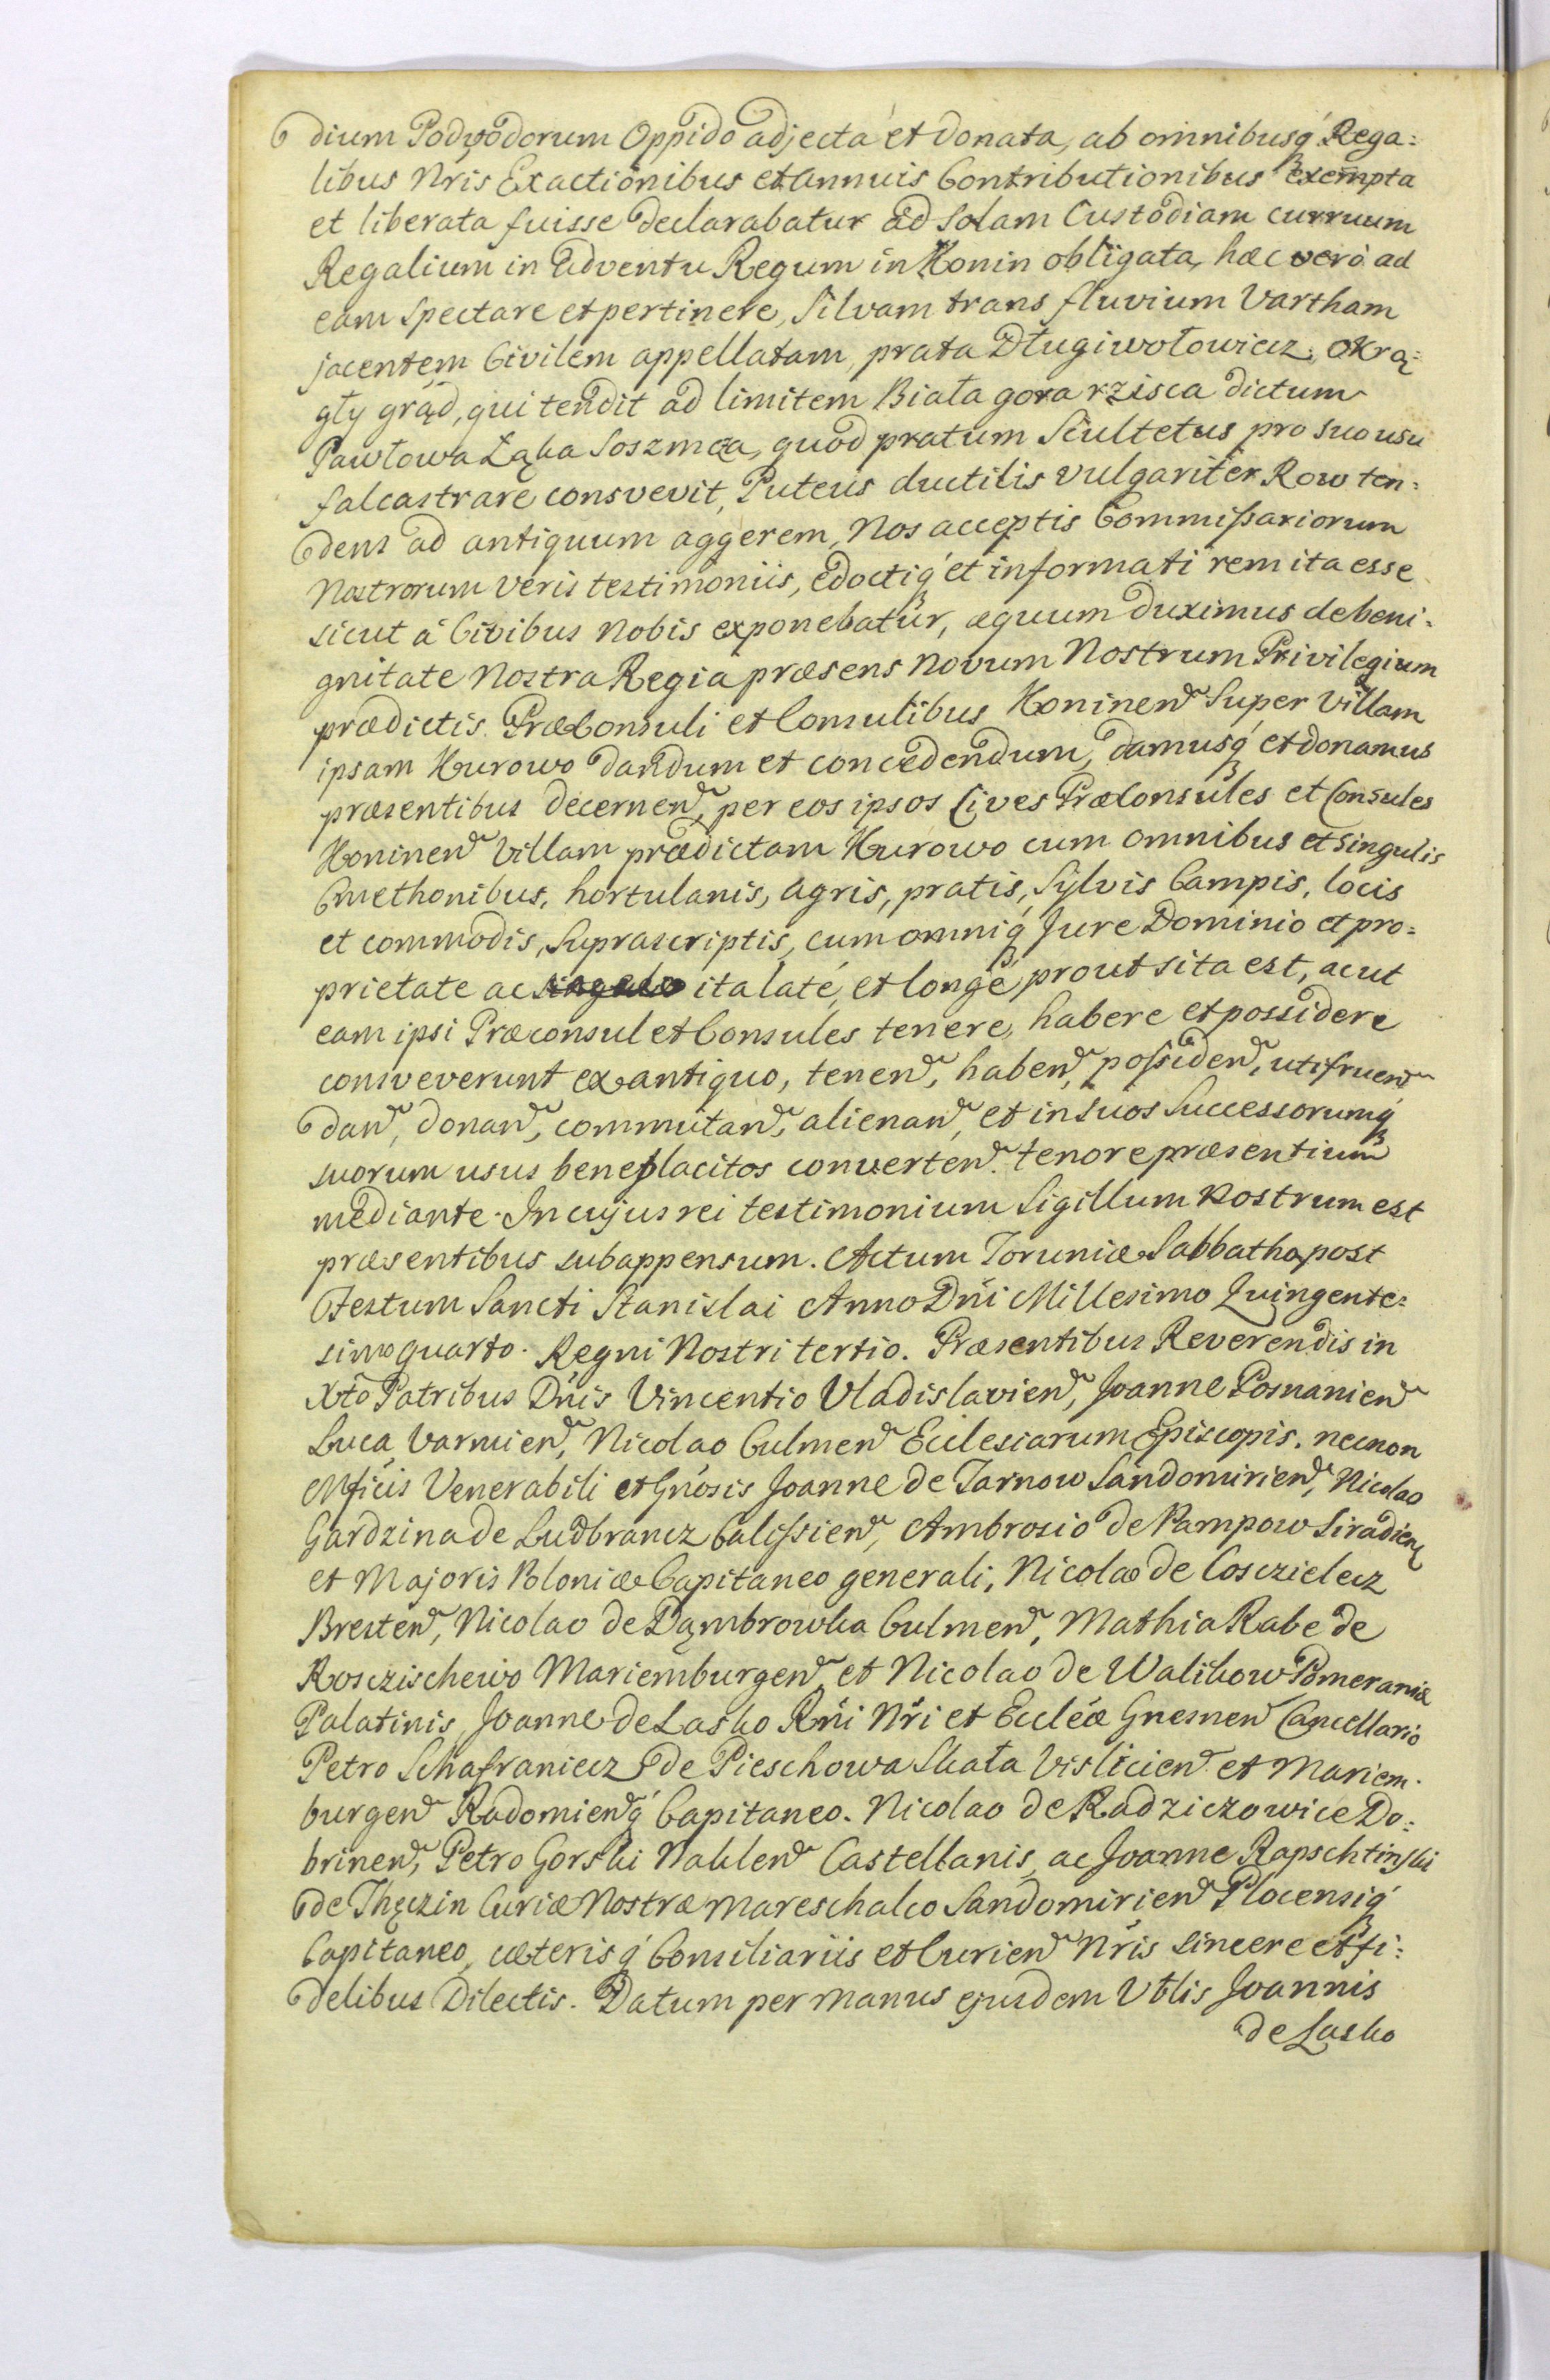 dium Podwodorum Oppido adjecta et donata, ab omnibusq́ Rega=
libus Nris Exactionibus et annuis Contributionibus exempta
et liberata fuisse declarabatur ad solam Custodiam curruum
Regalium in adventu Regum in Konin obligata, hæc verò ad
eam spectare et pertinere, Silvam trans fluvium Vartham
jacentem Civilem appellatam, prata Długiwołowicz, Okrą=
gły grąd, qui tendit ad limitem Biała gora rzisca dictum
Pawłowa Łąka Soszmeza, quod pratum Scultetus pro suo usu
falcastrare consvevit, Puteus ductilis vulgariter Row ten=
dens ad antiquum aggerem, Nos acceptis Commissariorum
Nostrorum veris testimoniis, edoctiq́ et informati rem ita esse
sicut à Civibus nobis exponebatur, æquum duximus de beni=
gnitate Nostra Regia præsens novum Nostrum Privilegium
prædictis Præconsuli et Consulibus Koninen super Villam
ipsam Kurowo dandum et concedendum, damusq́ et donamus
præsentibus decernen, per eos ipsos Cives Præconsules et Consules
Koninen Villam prædictam Kurowo cum omnibus et singulis
Cmethonibus, hortulanis, agris, pratis, Sylvis Campis, locis
et commodis, suprascriptis, cum omniq́ Jure Dominio et pro=
prietate ac ita laté, et longé prout sita est, ac ut
eam ipsi Præconsul et Consules tenere, habere et possidere
consveverunt ex antiquo, tenen, haben, possiden, utifruen
dan, donan, commutan, alienan, et in suos Successorumq́
suorum usus beneplacitos converten. tenore præsentium
mediante. In cujus rei testimonium Sigillum Nostrum est
præsentibus subappensum. Actum Toruniæ Sabbatho post
Festum Sancti Stanislai Anno Dni Millesimo Quingente=
simo quarto. Regni Nostri tertio. Præsentibus Reverendis in
Xto Patribus Dnis Vincentio Vladislavien, Joanne Posnanien
Luca Varmien, Nicolao Culmen Ecclesiarum Episcopis. necnon
Mficis Venerabili et Gnosis Joanne de Tarnow Sandomirien, Nicolao
Gardzina de Ludbrancz Calissien, Ambrosio de Pampow Siradien
et Majoris Poloniæ Capitaneo generali, Nicolao de Cosczielecz
Bresten, Nicolao de Dąmbrowka Culmen, Mathia Rabe de
Kosczischewo Mariemburgen et Nicolao de Walikow Pomeraniæ
Palatinis, Joanne de Lasko Rni Nri et Eccleæ Gnesnen Cancellario
Petro Schafraniecz de Pieschowa Skała Vislicien et Mariem=
burgen Radomienq́ Capitaneo. Nicolao de Radziczowice Do=
brinen, Petro Gorski Naklen Castellanis, ac Joanne Rapschtinski
de Thęczin Curiæ Nostræ Mareschalco Sandomirien Plocensiq́
Capitaneo, cæterisq́ Consiliariis et Curien Nris sincere et fi=
delibus Dilectis. Datum per manus ejusdem Vblis Joannis
de Lasko